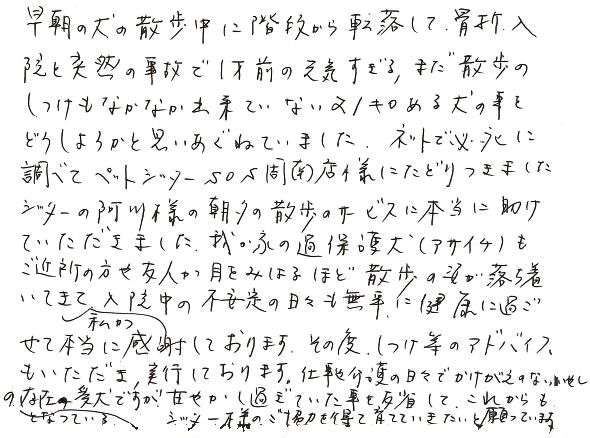 早朝の犬の散歩中に階段から転落して、骨折、入
院と突然の事故で1才前の元気すぎる、まだ散歩の
しつけもなかなか出来ていない21キロある犬の事を
どうしようかと思いあぐねていました。ネットで必死に
調べてペットシッターSOS周南店様にたどりつきました
シッターの阿川様の朝夕の散歩のサービスに本当に助け
ていただきました。我が家の過保護犬(アサイチ)も
ご近所の方や友人が目をみはるほど散歩の姿が落ち着
いてきて、入院中の不安定の日々も無事に健康に過ご
せて私が本当に感謝しております。その度、しつけ等のアドバイス
もいただき、実行しております。仕事と介護の日々でかけがえのないいやし
の存在となっている愛犬ですが甘やかし過ぎていた事を反省して、これからも
シッター様のご協力を得て育てていきたいと願っています